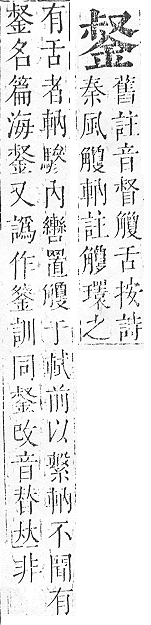 舊註音督觼舌按詩
秦風觼軜註觼環之
有舌者軜驂內轡置觼于軾前以繫軜不聞有
名篇海又譌作訓同改音替𠀤非